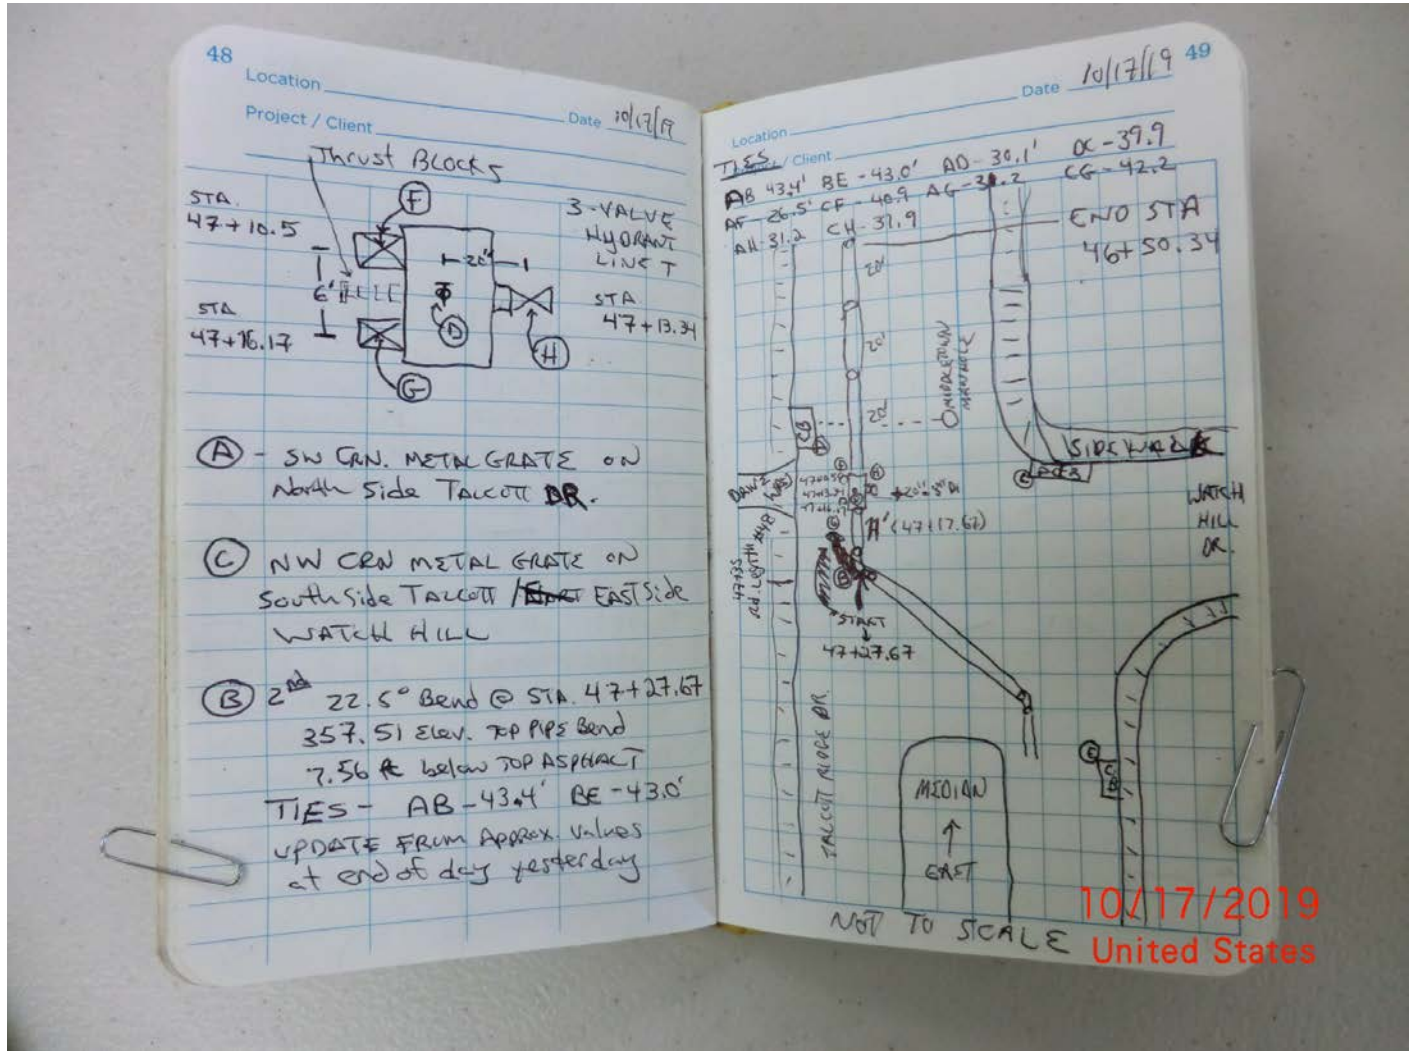 48
Location
Project / Client
Date 10/17/19
Thrust Blocks
STA.
47+10.5
F
3-VALVE
HYDRANT
LINE T
20"
6'
STA
47+13.34
STA
47+16.17
D
H
G
A - SW CRN. METAL GRATE ON
North Side TALCOTT DR.
C NW CRN METAL GRATE ON
South Side TALCOTT / EAST Side
WATCH HILL
B 2nd 22.5° Bend @ STA. 47+27.67
357.51 Elev. TOP PIPE Bend
7.56 ft below TOP ASPHALT
TIES - AB -43.4' BE -43.0'
UPDATE FROM Approx. Values
at end of day yesterday
49
Date 10/17/19
Location
TIES / Client
AB 43.4' BE -43.0' AD-30.1' DC-39.9
AF-26.5' CF-40.9 AG-31.2 CG-42.2
AH-31.2 CH-37.9
END STA
46+50.34
20'
20'
20'
MIDDLETOWN
MANHOLE
CB
SIDEWALK
C
DRIVE
WATCH
HILL
DR.
H' (47+17.67)
47+35
Rd. Length #48
START
47+27.67
TALCOTT RIDGE DR.
E
CB
MEDIAN
↑
EAST
NOT TO SCALE
10/17/2019
United States